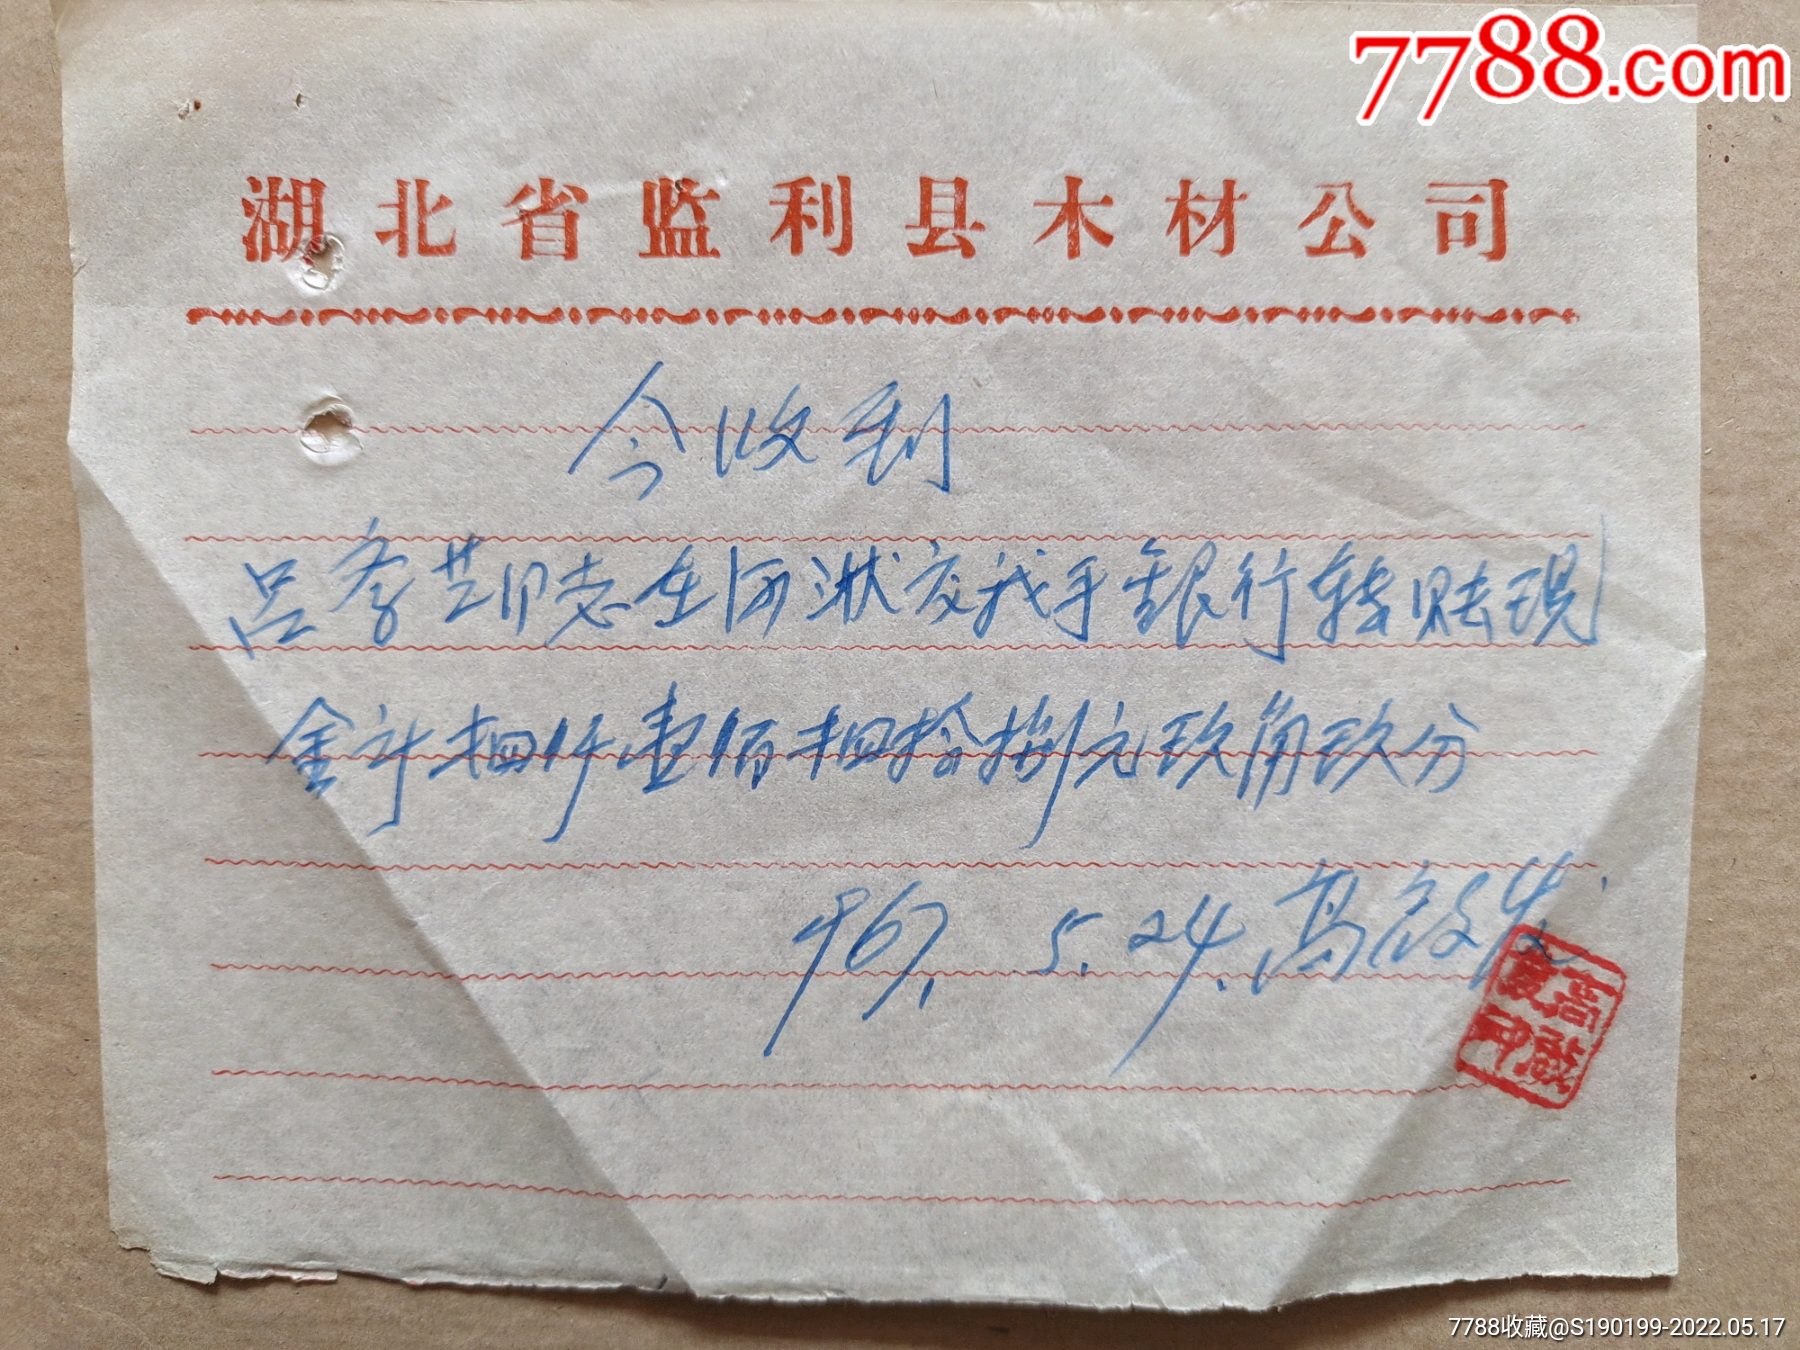 7788.com
湖北省监利县木材公司
今收到
吕孝芸同志在河洑交我手银行转账现
金计肆仟壹佰肆拾捌元玖角玖分
67. 5. 24. 高啟发
高啟发印
7788收藏@S190199-2022.05.17